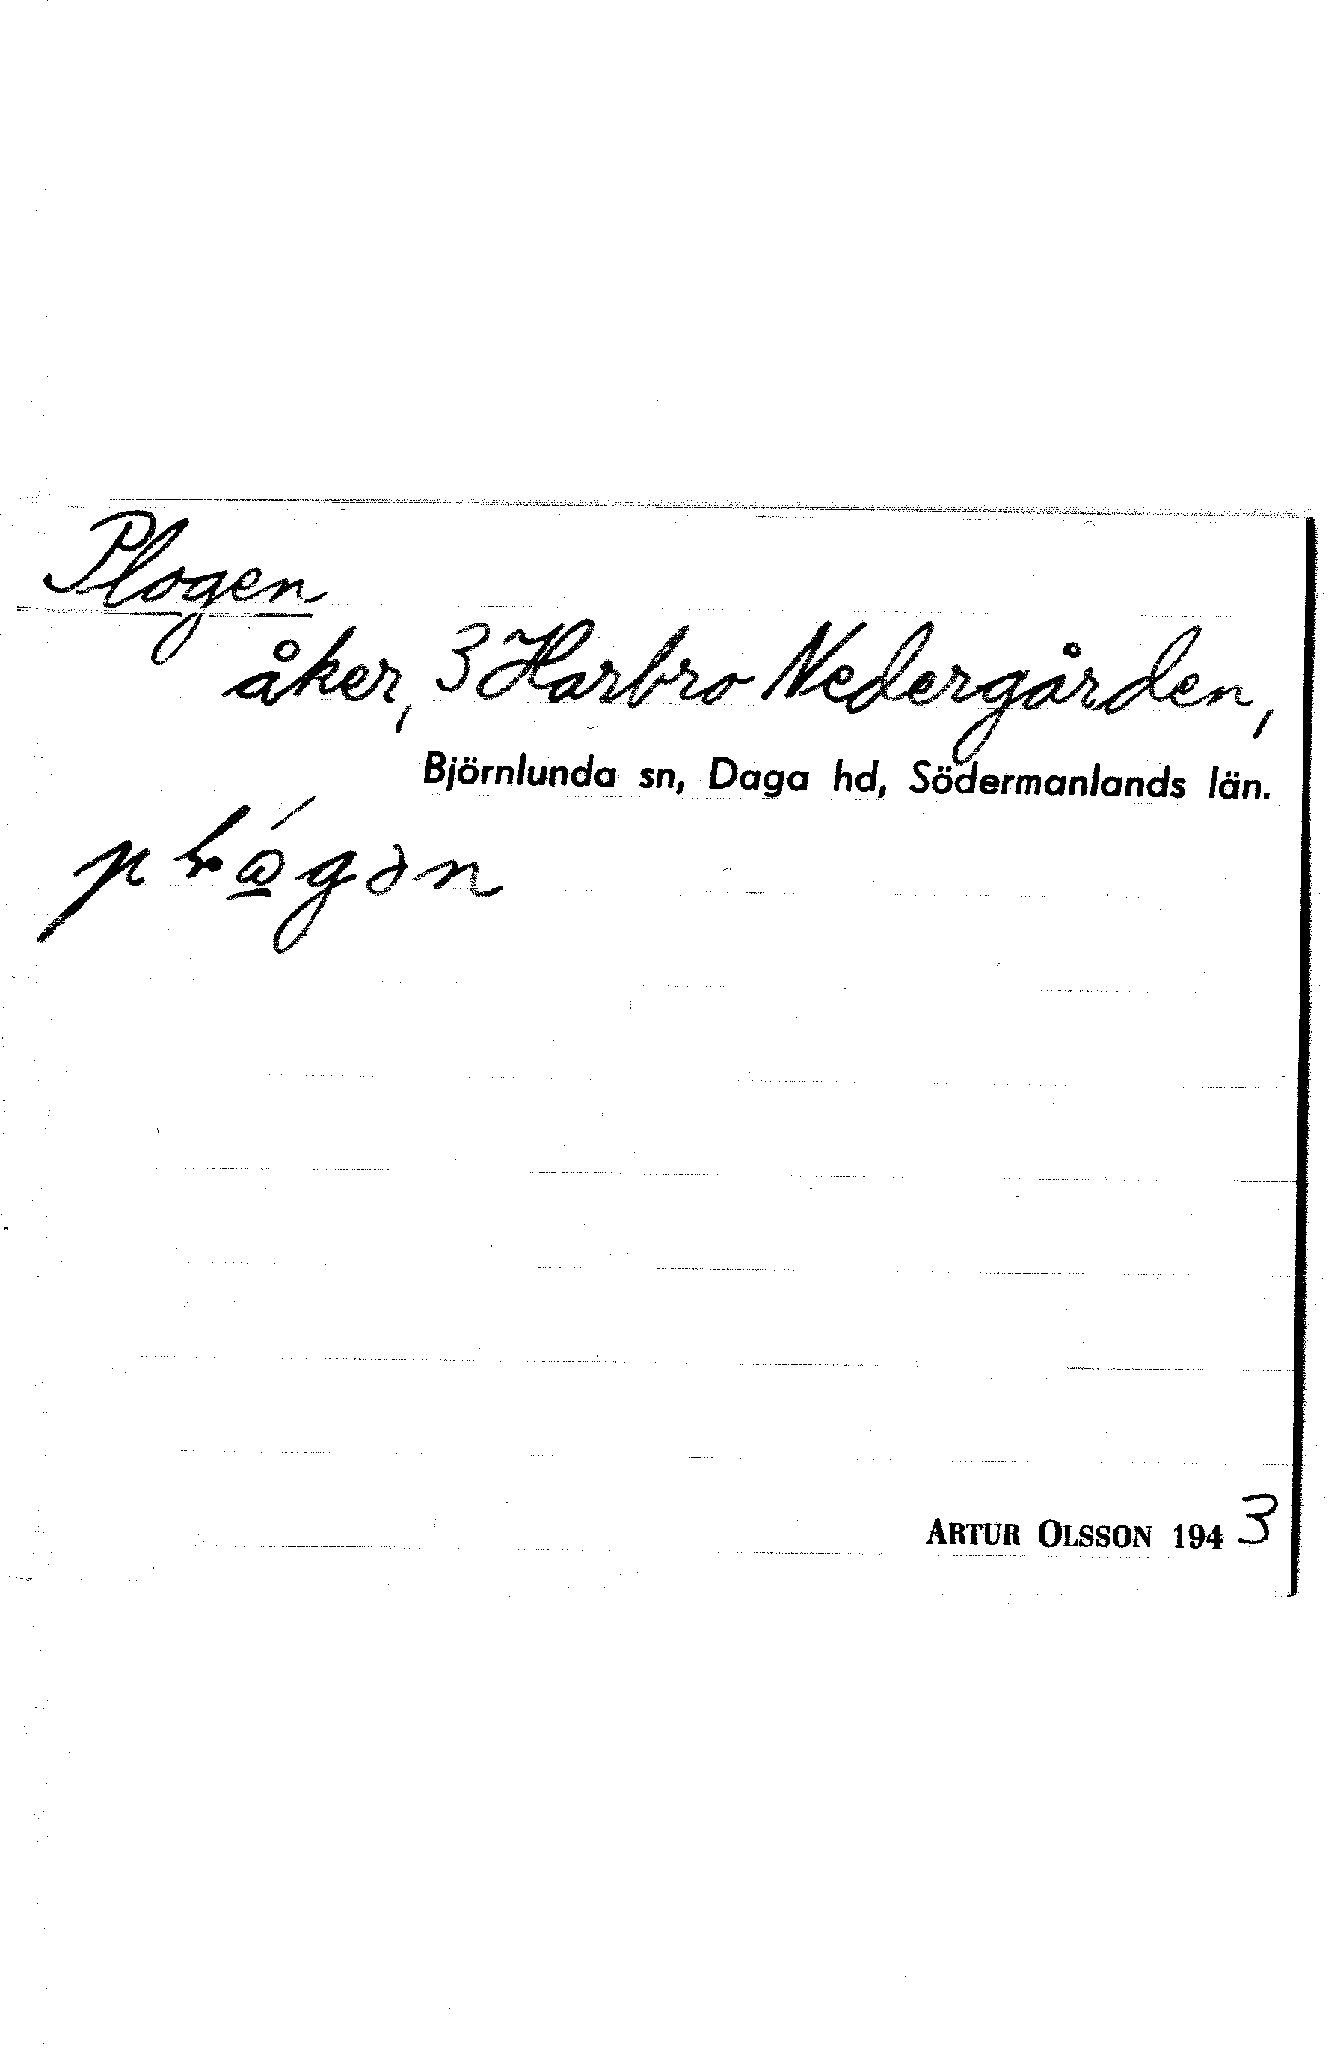 Plogen
åker, 3 Harbro Nedergården,
Björnlunda sn, Daga hd, Södermanlands län.
ARTUR OLSSON 1943